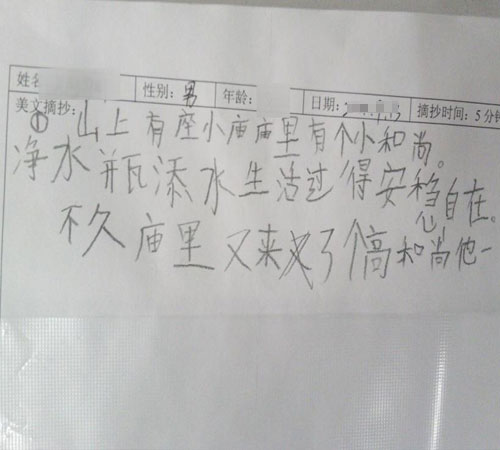 姓名 性别：男 年龄： 日期： 摘抄时间：5分钟
美文摘抄：
① 山上有座小庙庙里有个小和尚。
净水瓶添水生活过得安稳自在。
不久庙里又来了个高和尚他一